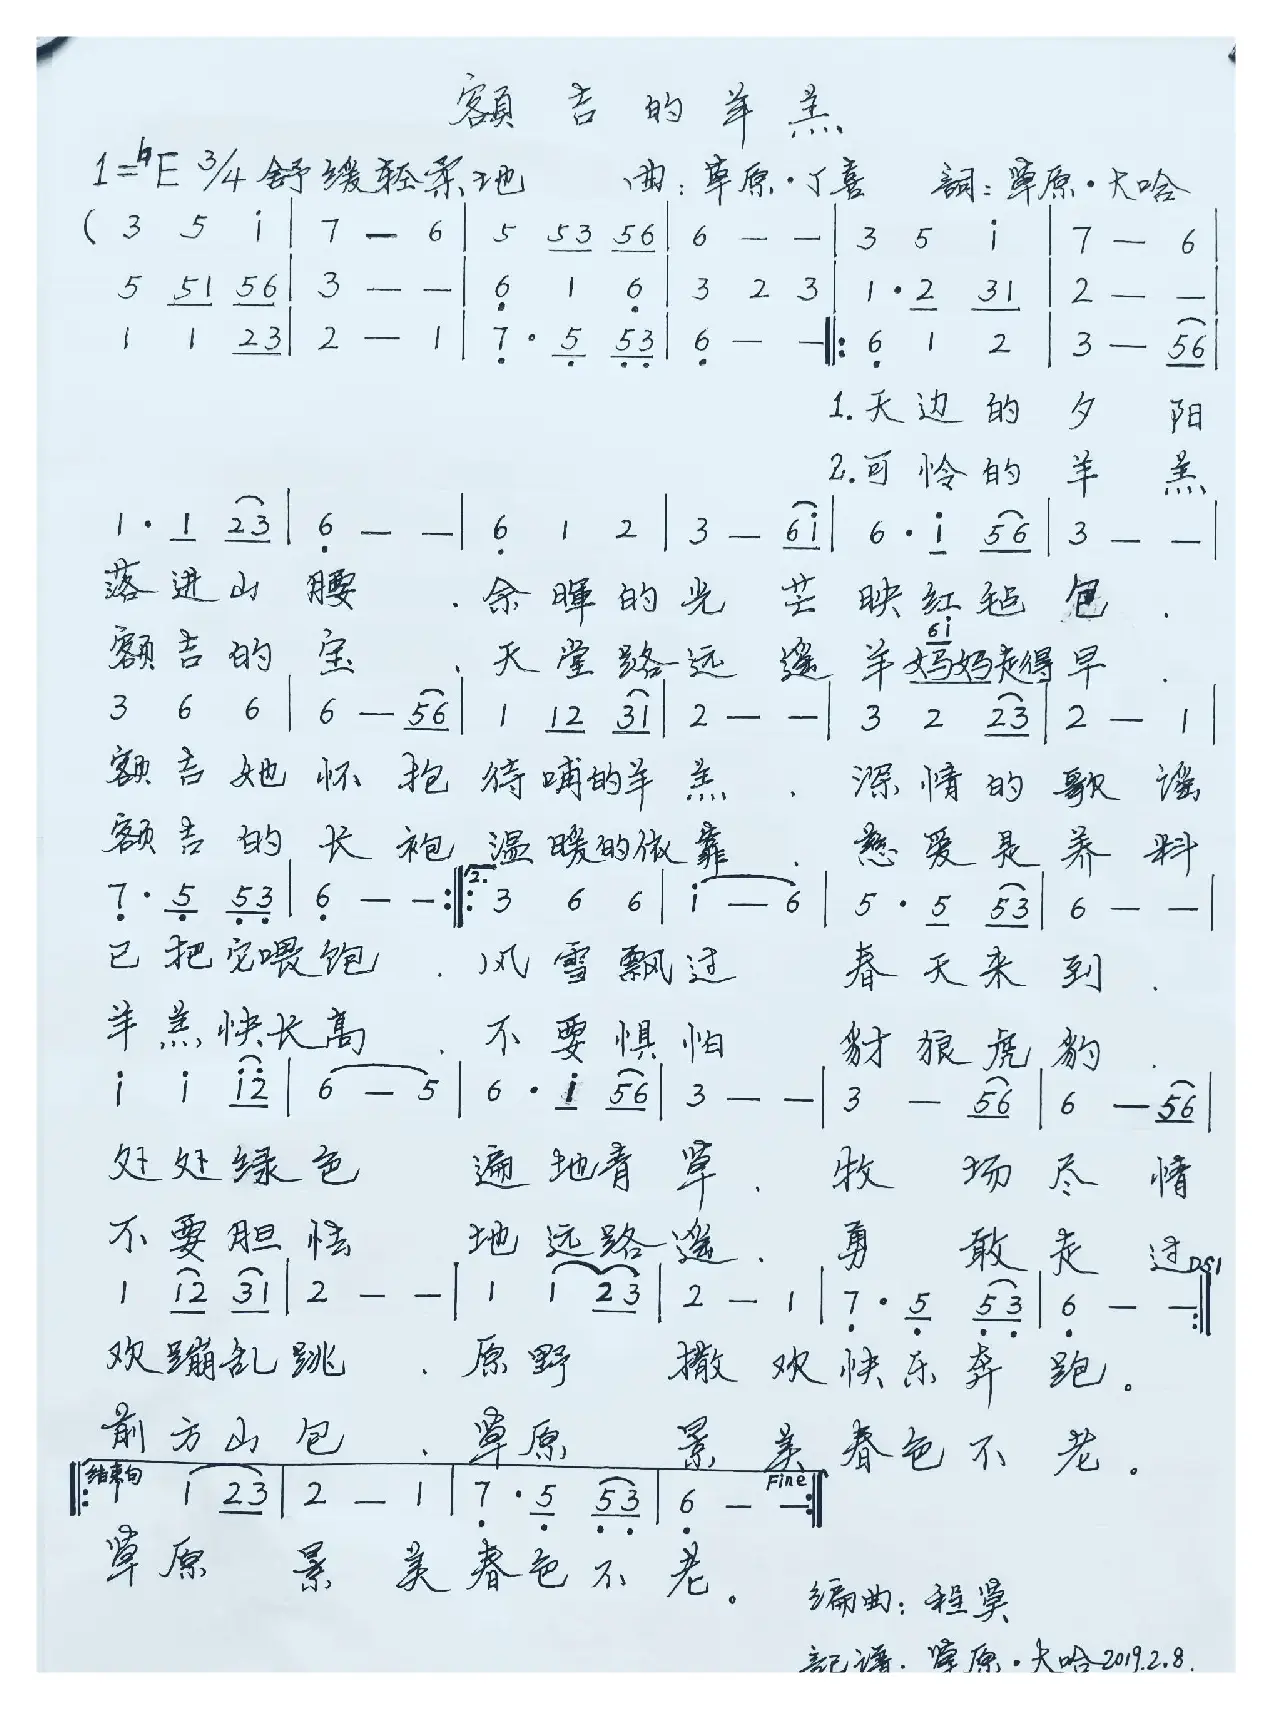 额吉的羊羔
1=♮E 3/4 舒缓轻柔地 曲:草原·丫喜 詞:草原·大哈
( 3 5 i | 7 — 6 | 5 53 56 | 6 — — | 3 5 i | 7 — 6 |
5 51 56 | 3 — — | 6 1 6 | 3 2 3 | 1·2 31 | 2 — — |
1 1 23 | 2 — 1 | 7·5 53 | 6 — — |: 6 1 2 | 3 — 56 |
1.天边的夕阳
2.可怜的羊羔
1·1 23 | 6 — — | 6 1 2 | 3 — 6i | 6·i 56 | 3 — — |
落进山腰.余暉的光芒映红毡包.
6i
额吉的宝.天堂路远遥羊妈妈走得早.
3 6 6 | 6 — 56 | 1 12 31 | 2 — — | 3 2 23 | 2 — 1 |
额吉她怀抱待哺的羊羔.深情的歌谣
额吉的长袍温暖的依靠.慈爱是养料
7·5 53 | 6 — — :|: 2. 3 6 6 | i — 6 | 5·5 53 | 6 — — |
已把它喂饱.风雪飘过 春天来到.
羊羔快长高.不要惧怕 豺狼虎豹.
i i i2 | 6 — 5 | 6·i 56 | 3 — — | 3 — 56 | 6 — 56 |
处处绿色 遍地青草.牧场尽情
不要胆怯 地远路遥.勇敢走过DS1
1 12 31 | 2 — — | 1 1 23 | 2 — 1 | 7·5 53 | 6 — — :|
欢蹦乱跳.原野 撒欢快乐奔跑。
前方山包.草原 景美春色不老。
|: 结束句 1 1 23 | 2 — 1 | 7·5 53 | 6 — — Fine :|
草原 景美春色不老。
编曲:程昊
記谱.草原·大哈2019.2.8.